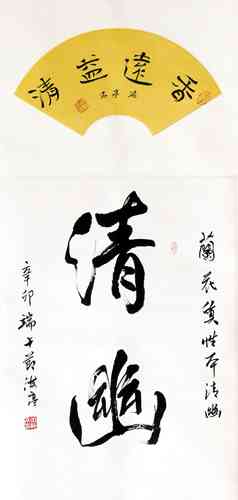 香遠益清
蘭花真性本清幽
清幽
辛卯端午節